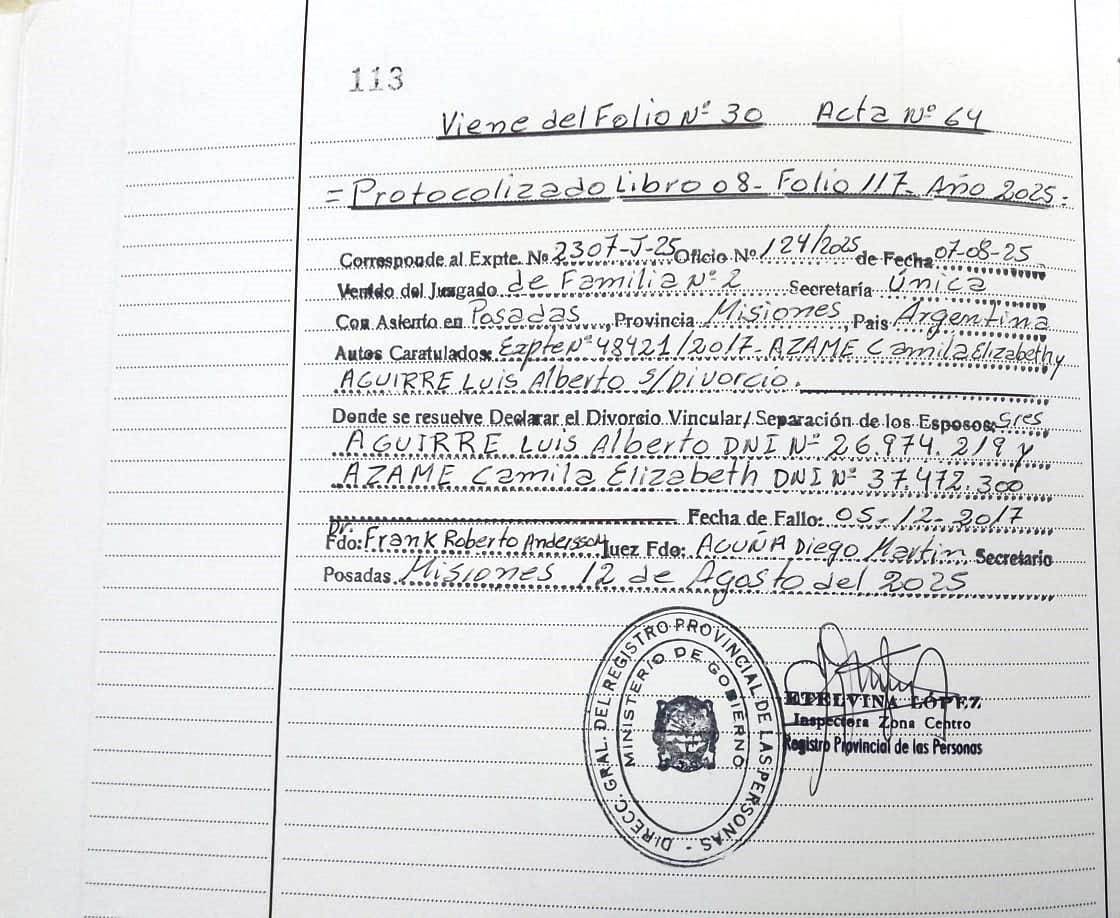 113
Viene del Folio Nº 30 Acta Nº 64
= Protocolizado Libro 08- Folio 117- Año 2025-
Corresponde al Expte. Nº 2307-J-25 Oficio Nº 124/2025 de Fecha 07-08-25
Venido del Juzgado de Familia Nº 2 Secretaría Única
Con Asiento en Posadas, Provincia Misiones, Pais Argentina
Autos Caratulados: Expte Nº 48421/2017- AZAME Camila Elizabeth y
AGUIRRE Luis Alberto s/Divorcio.
Donde se resuelve Declarar el Divorcio Vincular/ Separación de los Esposos: Sres
AGUIRRE Luis Alberto DNI Nº 26.974.219 y
AZAME Camila Elizabeth DNI Nº 37.472.300
Fecha de Fallo: 05-12-2017
Fdo: Dr. Frank Roberto Andersson Juez Fdo: ACUÑA Diego Martin Secretario
Posadas Misiones 12 de Agosto del 2025
DIRECC. GRAL. DEL REGISTRO PROVINCIAL DE LAS PERSONAS -
MINISTERIO DE GOBIERNO
ETELVINA LÓPEZ
Inspectora Zona Centro
Registro Provincial de las Personas